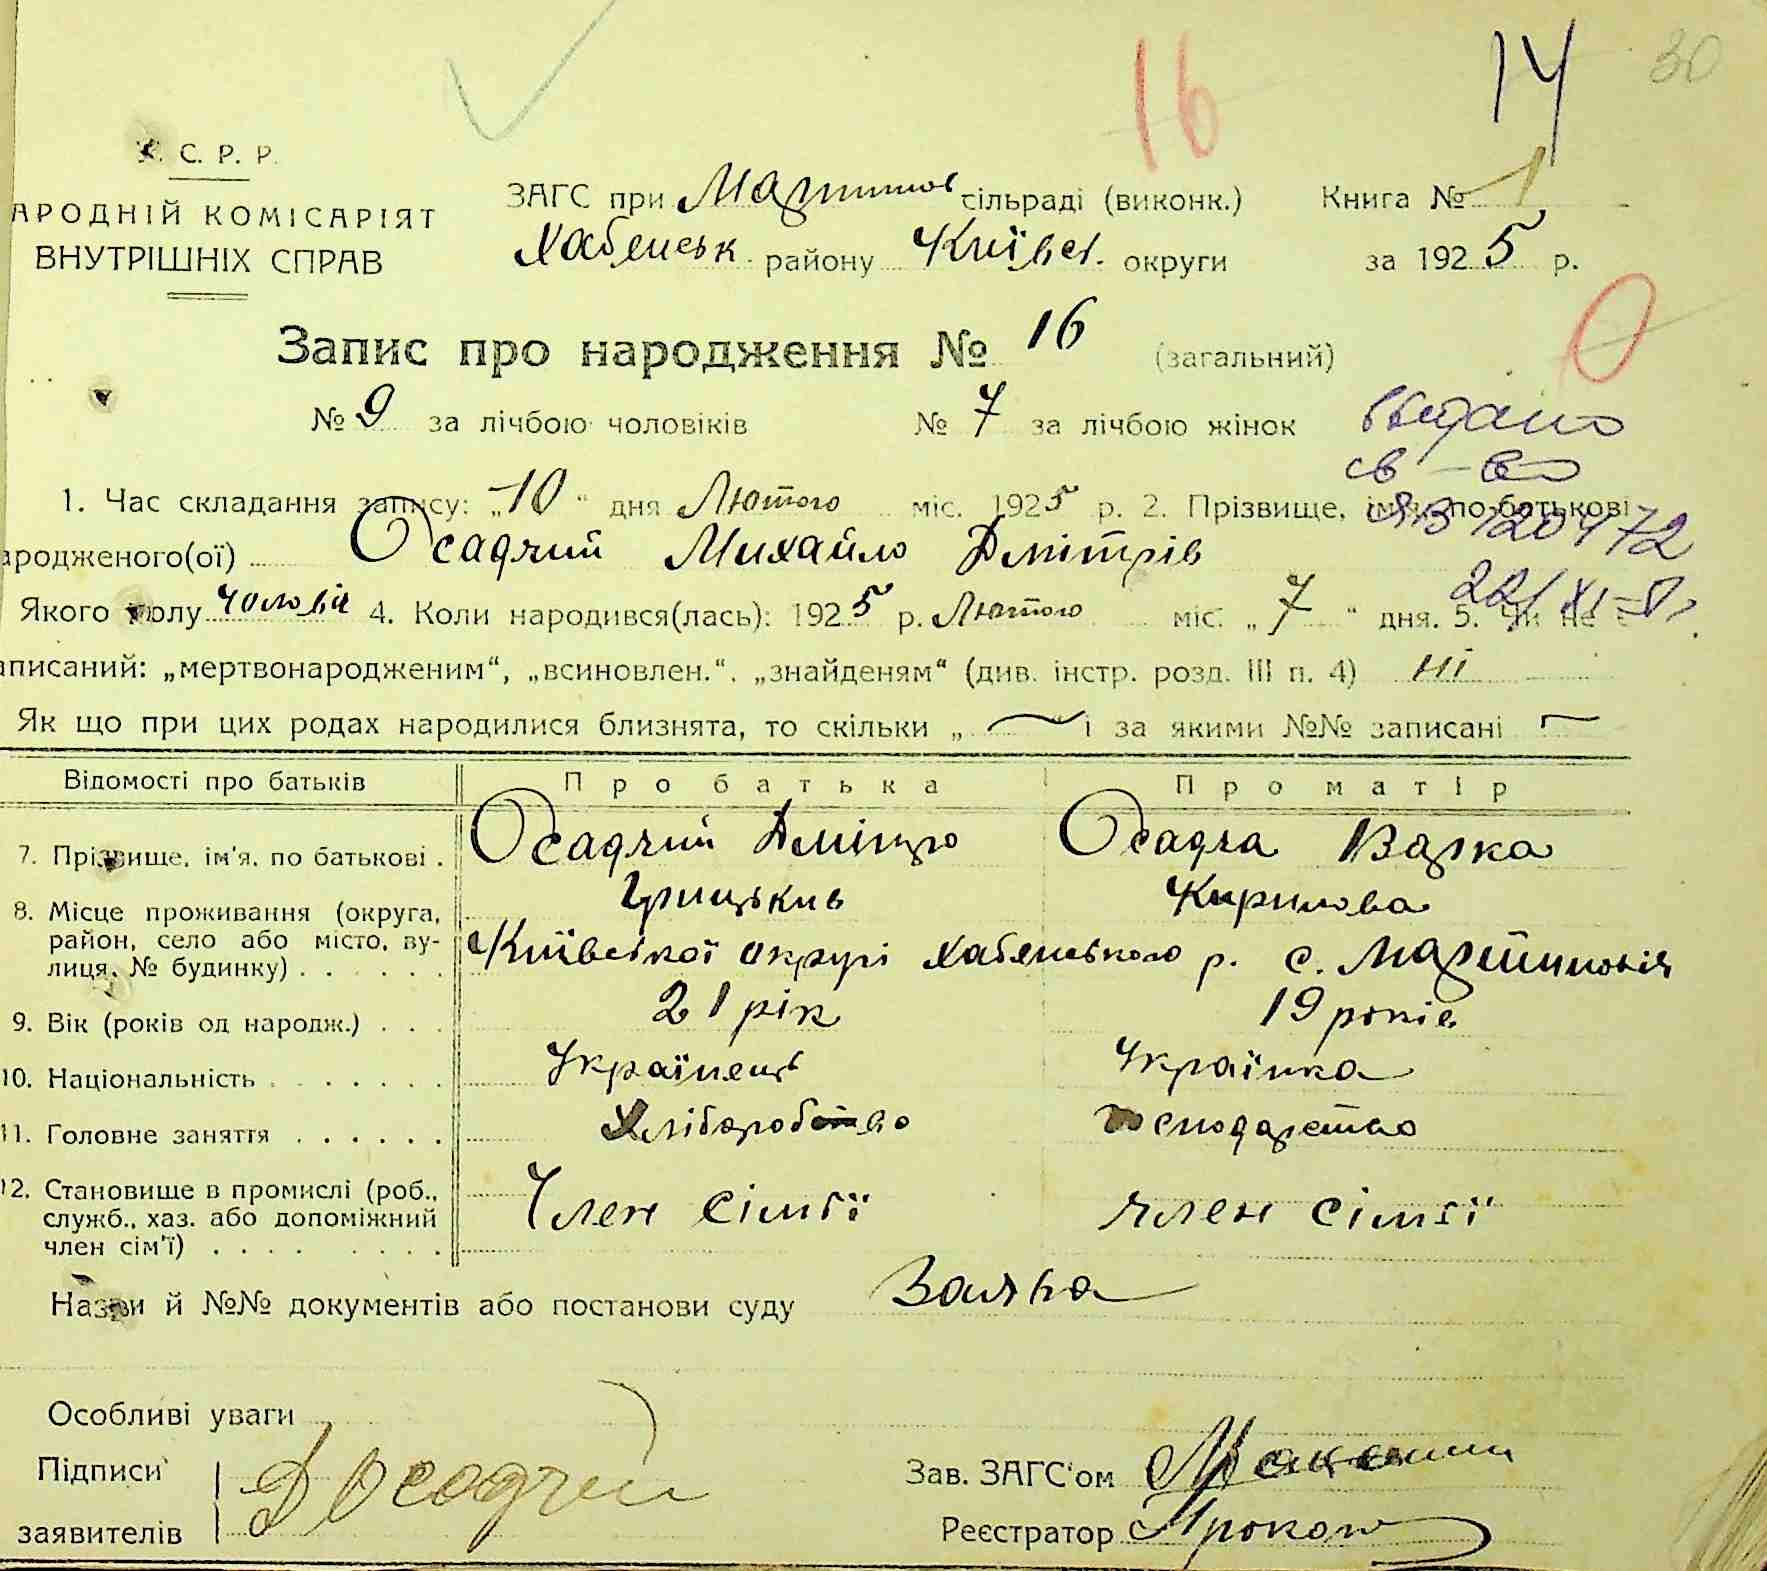 16 14 30
У. С. Р. Р.
АРОДНІЙ КОМІСАРІЯТ
ВНУТРІШНІХ СПРАВ
ЗАГС при Мартинов сільраді (виконк.) Книга № 1
Хабенськ. району Київськ. округи за 1925 р.
Запис про народження № 16 (загальний)
№ 9 за лічбою чоловіків № 7 за лічбою жінок
выдано
св-во
1. Час складання запису: „10“ дня Лютого міс. 1925 р. 2. Прізвище, ім'я, по-батькові
ародженого(ої) Осадчий Михайло Дмітрів
120472
Якого полу чоловіч 4. Коли народився(лась): 1925 р. Лютого міс. „7“ дня. 5. Чи не є
аписаний: „мертвонародженим“, „всиновлен.“. „знайденям“ (див. інстр. розд. III п. 4) ні
Як що при цих родах народилися близнята, то скільки „ — і за якими №№ записані —
Відомості про батьків Про батька Про матір
7. Прізвище, ім'я, по батькові . Осадчий Дмітро Грицьків Осадча Варка Кирилова
8. Місце проживання (округа,
район, село або місто, ву-
лиця, № будинку) . . . . . . Київської округі Хабенського р. с. Мартиновія
9. Вік (років од народж.) . . . 21 рік 19 років
10. Національність . . . . . . . Українець Українка
11. Головне заняття . . . . . . Хліборобство господарство
12. Становище в промислі (роб.,
служб., хаз. або допоміжний
член сім'ї) . . . . . . . . Член сімьї член сімьї
Назви й №№ документів або постанови суду Заява
Особливі уваги
Підписи Д Осадчий Зав. ЗАГС'ом
заявителів Реєстратор